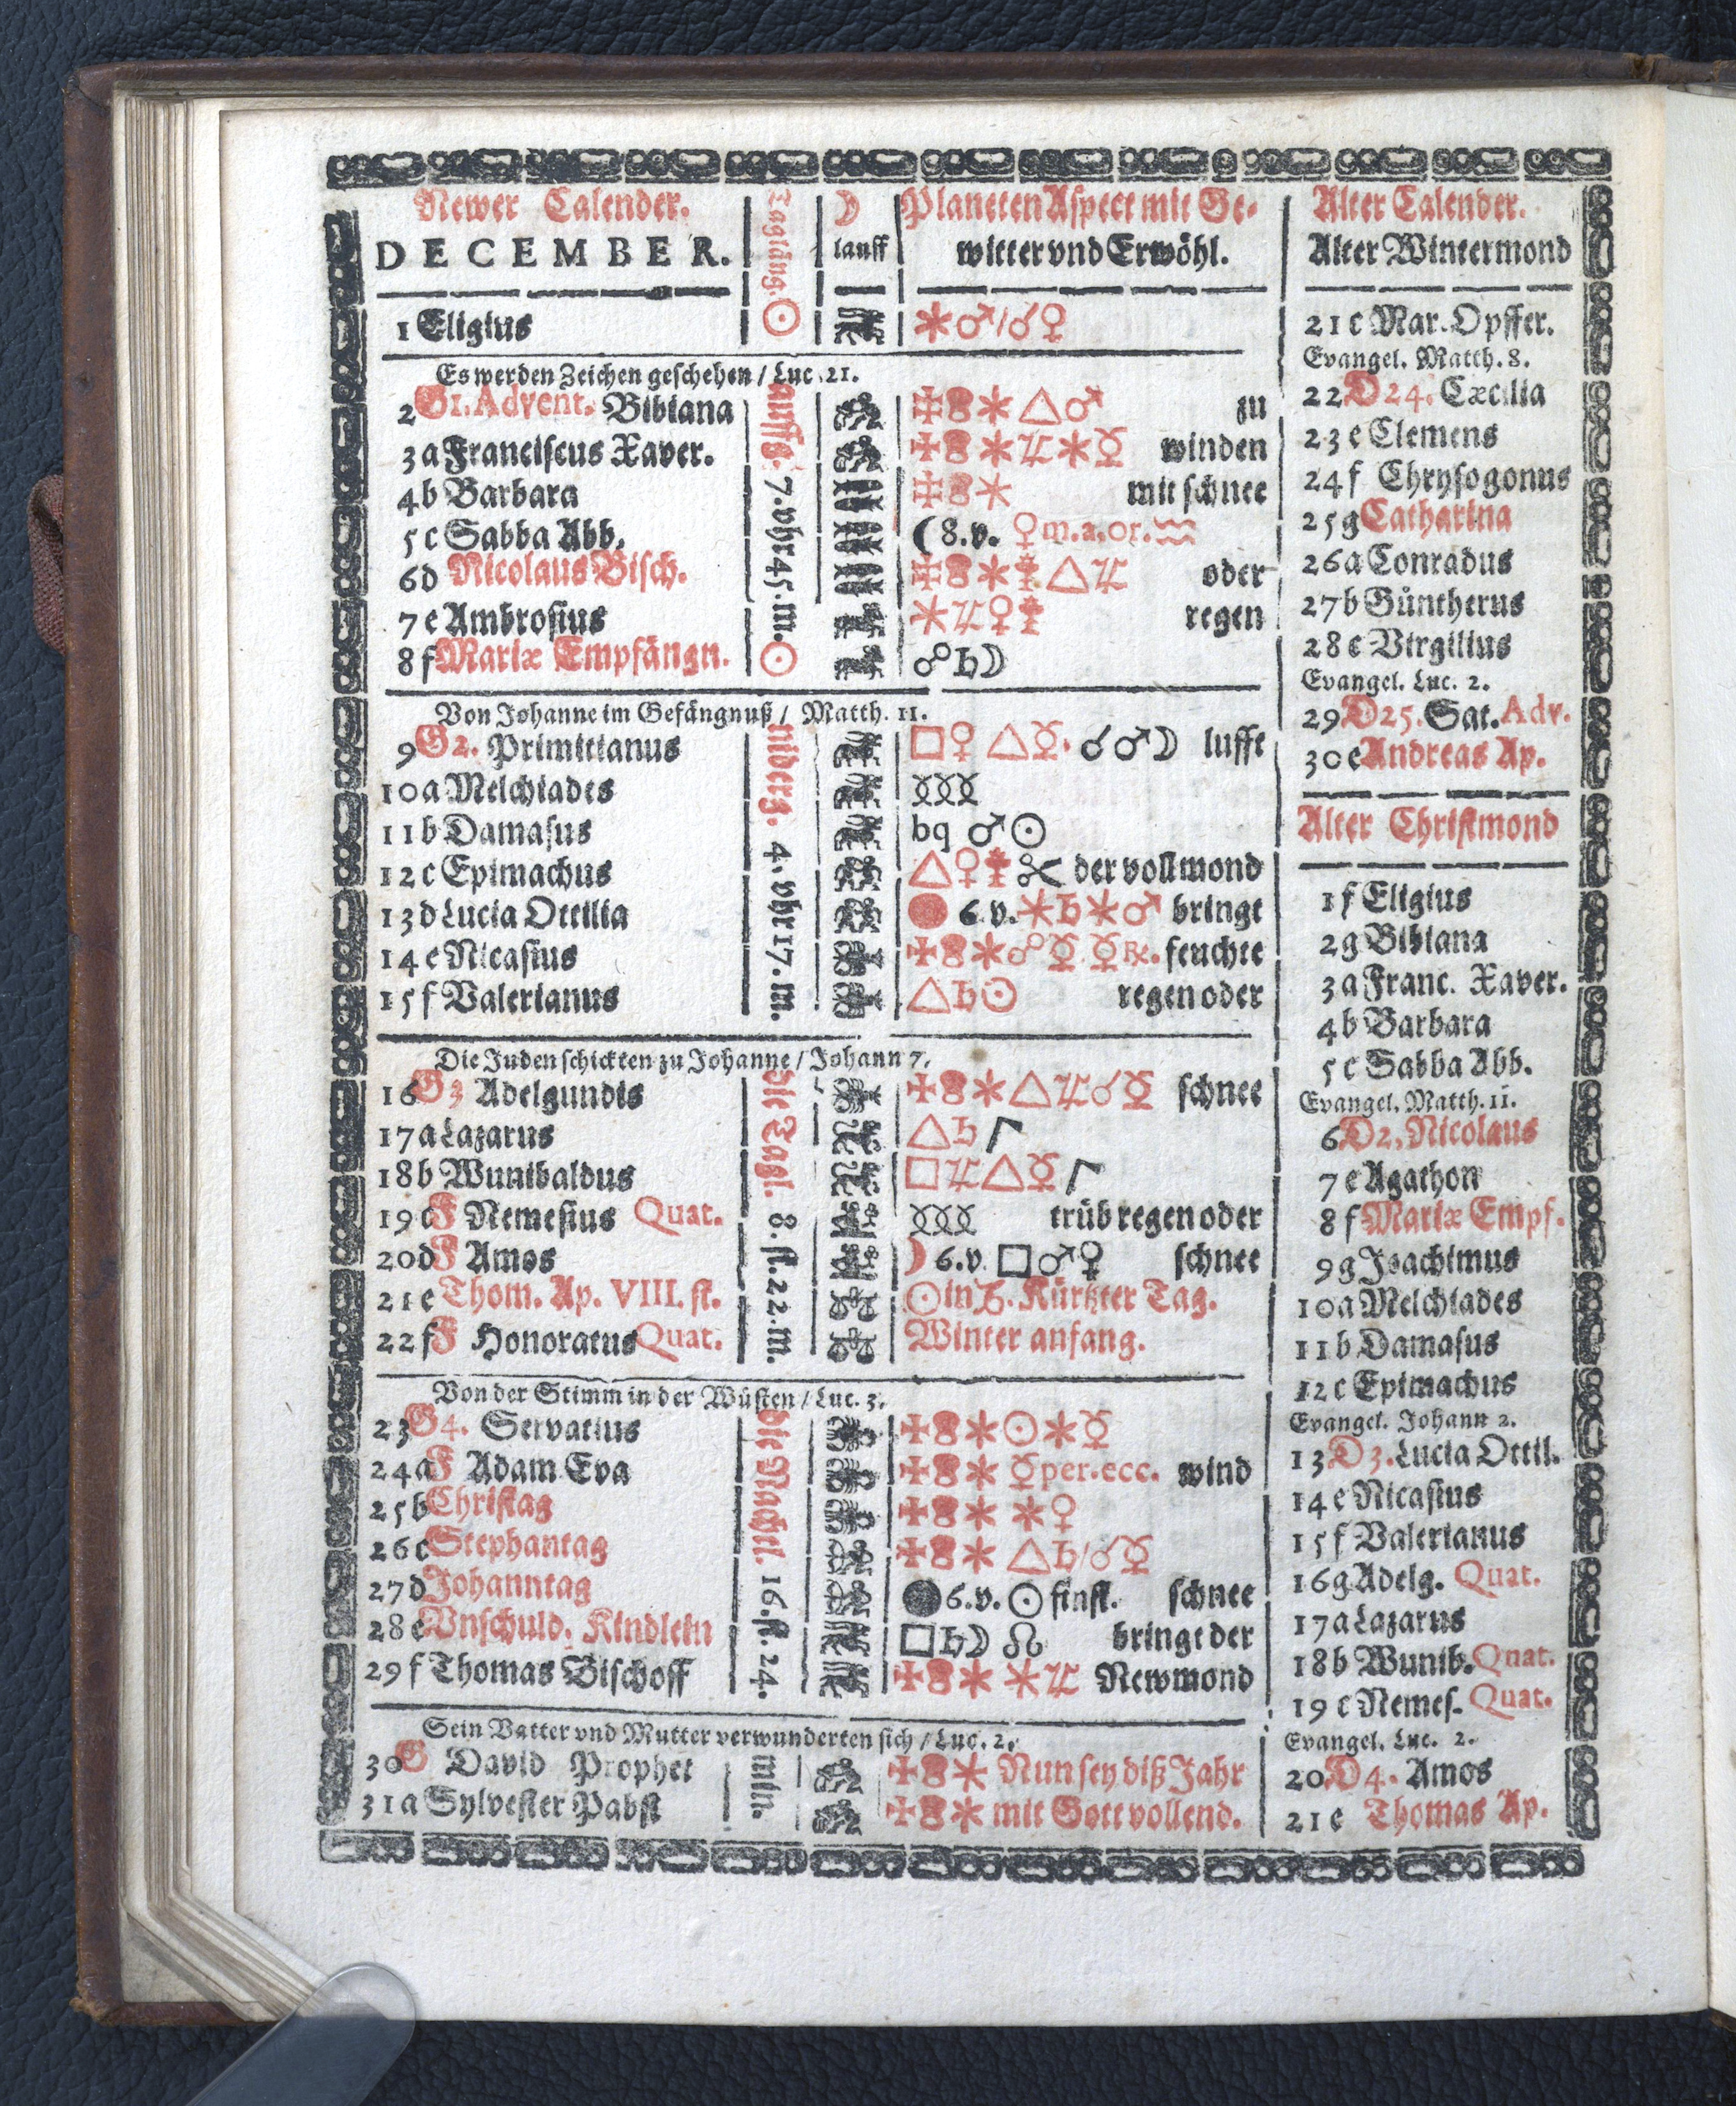 Newer Calender.
DECEMBER.
Taglång.
☽
lauff
Planeten Aspect mit Ge-
witter vnd Erwöhl.
Alter Calender.
Alter Wintermond
1 Eligius
⚹♂/☌♀
Es werden Zeichen geschehen / Luc. 21.
2 G1. Advent. Bibiana
△♂ zu
3 a Franciscus Xaver.
⚹♃⚹☿ winden
4 b Barbara
mit schnee
5 c Sabba Abb.
(8.v. ♀m.a.or.♒
6 d Nicolaus Bisch.
△♃ oder
7 e Ambrosius
⚹♃♀ regen
8 f Mariæ Empfängn.
☍♄☽
⊙ auffg. 7. vhr 45. m. ⊙
Von Johanne im Gefängnuß / Matth. 11.
9 G2. Primitianus
□♀ △☿. ☌♂☽ lufft
10 a Melchiades
11 b Damasus
bq ♂⊙
12 c Epimachus
△♀ der vollmond
13 d Lucia Ottilia
6.v. ⚹♄⚹♂ bringt
14 e Nicasius
☍☿ ☿℞. feuchte
15 f Valerianus
△♄⊙ regen oder
niderg. 4. vhr 17. m.
Die Juden schickten zu Johanne / Johann 7.
16 G3 Adelgundis
△♃☌☿ schnee
17 a Lazarus
△♄
18 b Wunibaldus
□♃△☿
19 c F Nemesius Quat.
trüb regen oder
20 d F Amos
☽ 6.v. □♂♀ schnee
21 e Thom. Ap. VIII. st.
⊙ in ♑. Kürtzter Tag.
22 f F Honoratus Quat.
Winter anfang.
die Tagl. 8. st. 22. m.
Von der Stimm in der Wüsten / Luc. 3.
23 G4. Servatius
⚹⊙⚹☿
24 a F Adam Eva
☿per.ecc. wind
25 b Christag
⚹♀
26 c Stephantag
△♄/☌☿
27 d Johanntag
6.v. ⊙ finst. schnee
28 e Vnschuld. Kindlein
□♄☽ ☊ bringt der
29 f Thomas Bischoff
⚹♃ Newmond
die Nachtl. 16. st. 24.
Sein Vatter vnd Mutter verwunderten sich / Luc. 2.
30 G David Prophet
Nun sey diß Jahr
31 a Sylvester Pabst
mit Gott vollend.
min.
21 c Mar. Opffer.
Evangel. Matth. 8.
22 D24. Cæcilia
23 e Clemens
24 f Chrysogonus
25 g Catharina
26 a Conradus
27 b Güntherus
28 c Virgilius
Evangel. Luc. 2.
29 D25. Sat. Adv.
30 e Andreas Ap.
Alter Christmond
1 f Eligius
2 g Bibiana
3 a Franc. Xaver.
4 b Barbara
5 c Sabba Abb.
Evangel. Matth. 11.
6 D2. Nicolaus
7 e Agathon
8 f Mariæ Empf.
9 g Joachimus
10 a Melchiades
11 b Damasus
12 c Epimachus
Evangel. Johann 2.
13 D3. Lucia Ottil.
14 e Nicasius
15 f Valerianus
16 g Adelg. Quat.
17 a Lazarus
18 b Wunib. Quat.
19 c Nemes. Quat.
Evangel. Luc. 2.
20 D4. Amos
21 e Thomas Ap.